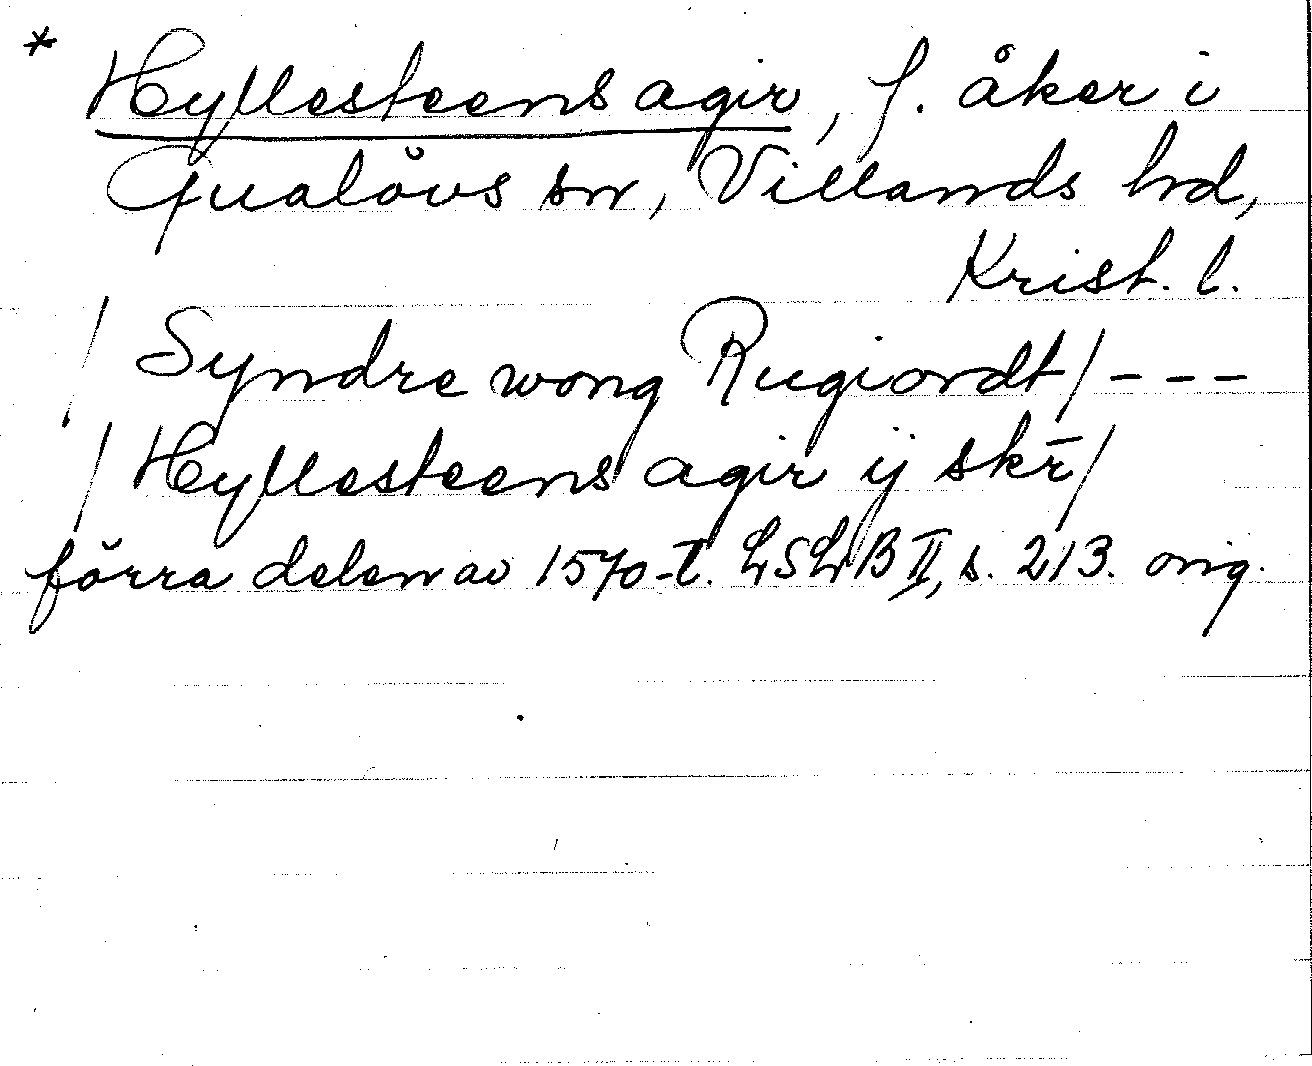 * Hyllesteens agir, f. åker i
Gualövs sn, Villands hd,
Krist. l.
/ Syndre wong Rugiordt / - - -
/ Hyllesteens agir ij skr̄ /
förra delen av 1570-t. LSLB II, s. 213. orig.